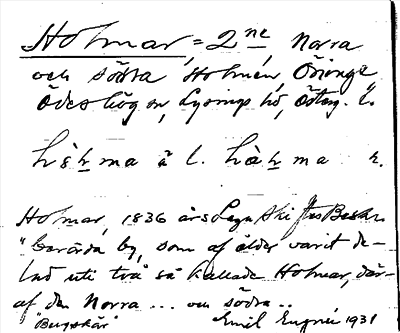 Holmar, = 2ne, Norra
och södra Holmen,
Ödeshög sn, Lysings hd, Östg. l.
ma å l. ma
Holmar, 1836 års Laga Skiftes Beskr.
"Gerärda by, som af ålder varit de-
lad uti två så kallade Holmar, där-
af den Norra ... och södra ..
"Bergskär" Emil 1931